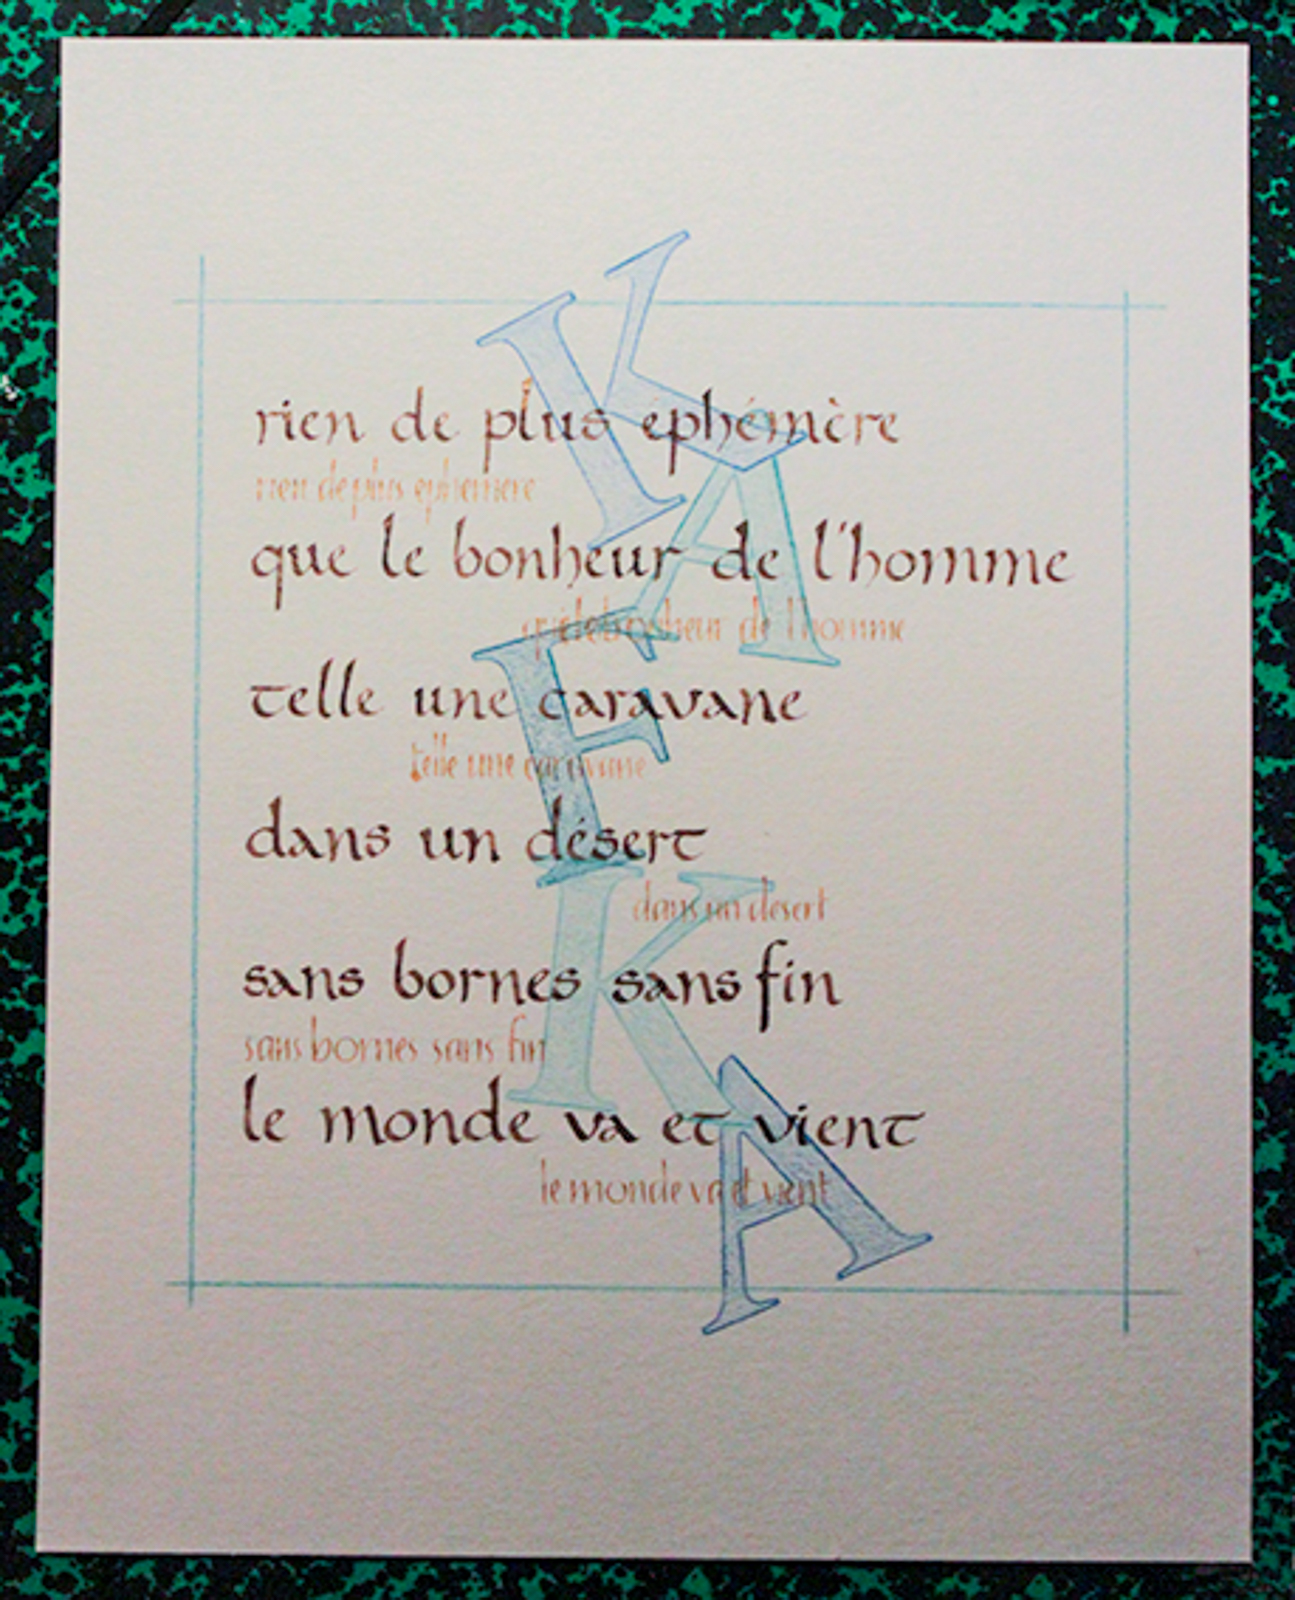 KAFKA
rien de plus éphémère
rien de plus ephemere
que le bonheur de l'homme
que le bonheur de l'homme
telle une caravane
telle une caravane
dans un désert
dans un desert
sans bornes sans fin
sans bornes sans fin
le monde va et vient
le monde va et vient